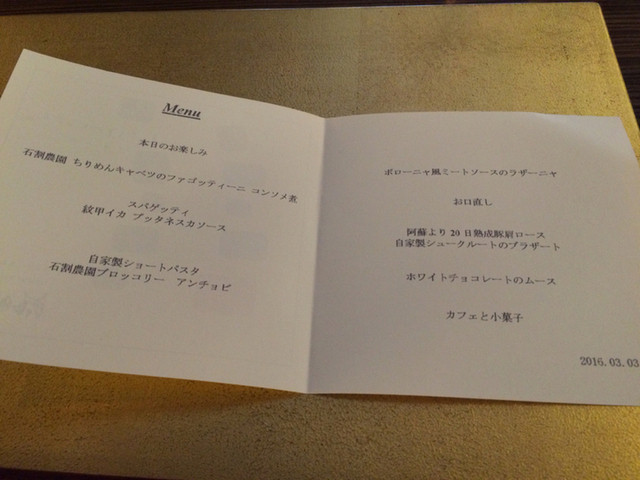 Menu
本日のお楽しみ
石割農園 ちりめんキャベツのファゴッティーニ コンソメ煮
スパゲッティ
紋甲イカ プッタネスカソース
自家製ショートパスタ
石割農園ブロッコリー アンチョビ
ボローニャ風ミートソースのラザーニャ
お口直し
阿蘇より20日熟成豚肩ロース
自家製シュークルートのブラザート
ホワイトチョコレートのムース
カフェと小菓子
2016.03.03